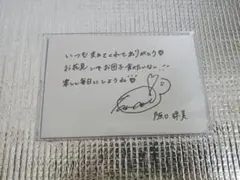 いつもまめてくれてありがとう
お花見してお団子食べたいな〜!!
楽しい毎日にしようね
阪口珠美